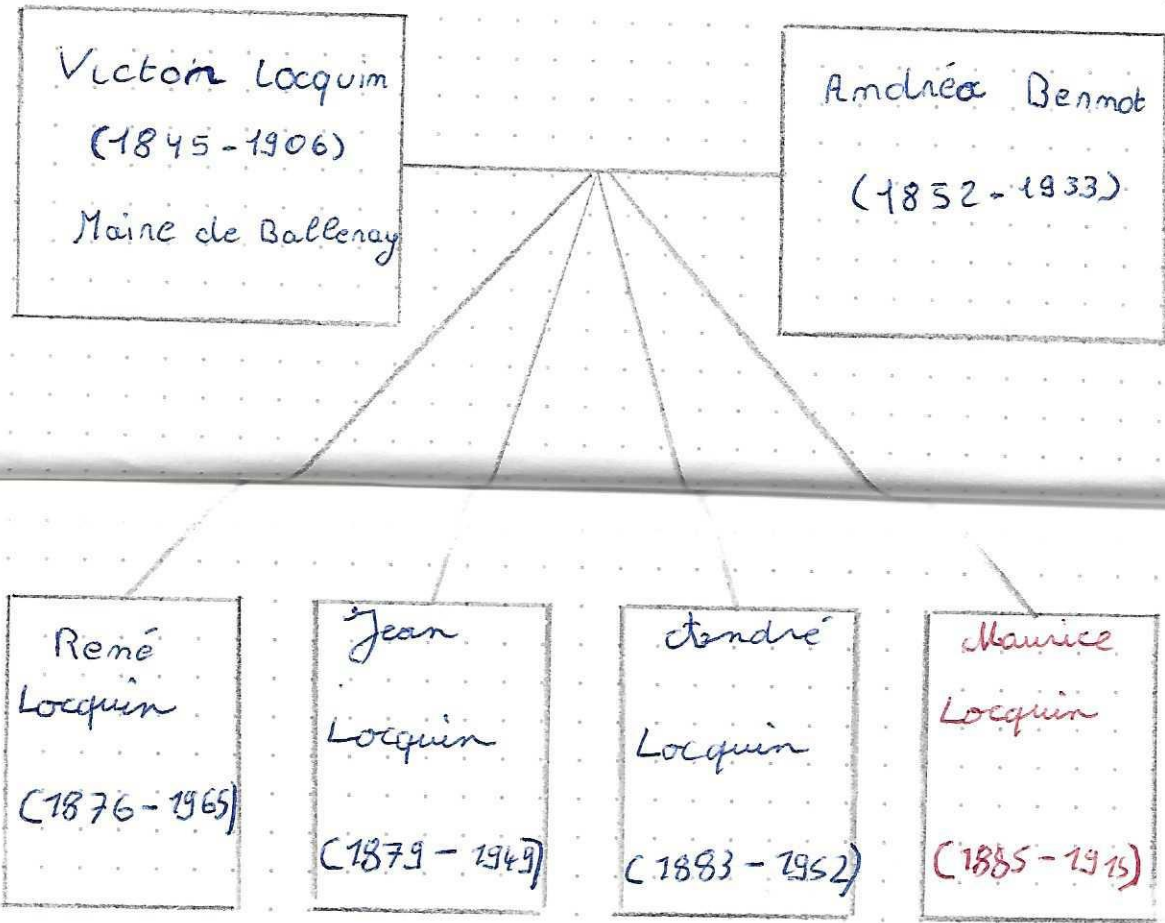 Victor Locquin
(1845-1906)
Maire de Balleray
Andréa Bennot
(1852-1933)
René
Locquin
(1876-1965)
Jean
Locquin
(1879-1949)
André
Locquin
(1883-1952)
Maurice
Locquin
(1885-1915)